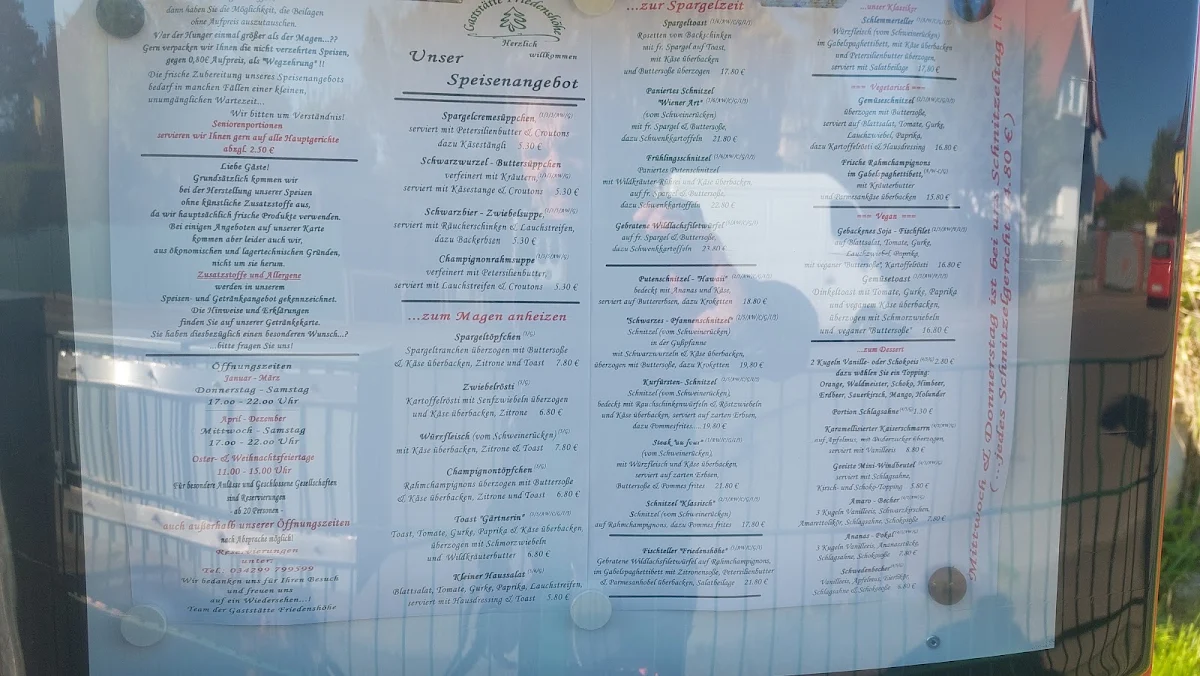 dann haben Sie die Möglichkeit, die Beilagen
ohne Aufpreis auszutauschen.
War der Hunger einmal größer als der Magen...??
Gern verpacken wir Ihnen die nicht verzehrten Speisen,
gegen 0,80€ Aufpreis, als "Wegzehrung" !!
Die frische Zubereitung unseres Speisenangebots
bedarf in manchen Fällen einer kleinen,
unumgänglichen Wartezeit...
Wir bitten um Verständnis!
Seniorenportionen
servieren wir Ihnen gern auf alle Hauptgerichte
abzgl. 2.50 €
Liebe Gäste!
Grundsätzlich kommen wir
bei der Herstellung unserer Speisen
ohne künstliche Zusatzstoffe aus,
da wir hauptsächlich frische Produkte verwenden.
Bei einigen Angeboten auf unserer Karte
kommen aber leider auch wir,
aus ökonomischen und lagertechnischen Gründen,
nicht um sie herum.
Zusatzstoffe und Allergene
werden in unserem
Speisen- und Getränkeangebot gekennzeichnet.
Die Hinweise und Erklärungen
finden Sie auf unserer Getränkekarte.
Sie haben diesbezüglich einen besonderen Wunsch...?
...bitte fragen Sie uns!
Öffnungszeiten
Januar - März
Donnerstag - Samstag
17.00 - 22.00 Uhr
April - Dezember
Mittwoch - Samstag
17.00 - 22.00 Uhr
Oster- & Weihnachtsfeiertage
11.00 - 15.00 Uhr
Für besondere Anlässe und Geschlossene Gesellschaften
sind Reservierungen
- ab 20 Personen -
auch außerhalb unserer Öffnungszeiten
nach Absprache möglich!
Reservierungen
unter:
Tel.: 034299 799599
Wir bedanken uns für Ihren Besuch
und freuen uns
auf ein Wiedersehen...!
Team der Gaststätte Friedenshöhe
Gaststätte Friedenshöhe
Herzlich
willkommen
Unser
Speisenangebot
Spargelcremesüppchen,
serviert mit Petersilienbutter & Croutons
dazu Käsestängli 5.30 €
Schwarzwurzel - Buttersüppchen
verfeinert mit Kräutern,
serviert mit Käsestange & Croutons 5.30 €
Schwarzbier - Zwiebelsuppe,
serviert mit Räucherschinken & Lauchstreifen,
dazu Backerbsen 5.30 €
Champignonrahmsuppe
verfeinert mit Petersilienbutter,
serviert mit Lauchstreifen & Croutons 5.30 €
...zum Magen anheizen
Spargeltöpfchen
Spargeltranchen überzogen mit Buttersoße
& Käse überbacken, Zitrone und Toast 7.80 €
Zwiebelrösti
Kartoffelrösti mit Senfzwiebeln überzogen
und Käse überbacken, Zitrone 6.80 €
Würzfleisch (vom Schweinerücken)
mit Käse überbacken, Zitrone & Toast 7.80 €
Champignontöpfchen
Rahmchampignons überzogen mit Buttersoße
& Käse überbacken, Zitrone und Toast 6.80 €
Toast "Gärtnerin"
Toast, Tomate, Gurke, Paprika & Käse überbacken,
überzogen mit Schmorzwiebeln
und Wildkräuterbutter 6.80 €
Kleiner Haussalat
Blattsalat, Tomate, Gurke, Paprika, Lauchstreifen,
serviert mit Hausdressing & Toast 5.80 €
...zur Spargelzeit
Spargeltoast
Rosetten vom Backschinken
mit fr. Spargel auf Toast,
mit Käse überbacken
und Buttersoße überzogen 17.80 €
Paniertes Schnitzel
"Wiener Art"
(vom Schweinerücken)
mit fr. Spargel & Buttersoße,
dazu Schwenkkartoffeln 21.80 €
Frühlingsschnitzel
Paniertes Putenschnitzel
mit Wildkräuter-Rührei und Käse überbacken,
auf fr. Spargel & Buttersoße,
dazu Schwenkkartoffeln 22.80 €
Gebratene Wildlachsfiletwürfel
auf fr. Spargel & Buttersoße,
dazu Schwenkkartoffeln 23.80 €
Putenschnitzel - "Hawaii"
bedeckt mit Ananas und Käse,
serviert auf Buttererbsen, dazu Kroketten 18.80 €
"Schwarzes - Pfannenschnitzel"
Schnitzel (vom Schweinerücken)
in der Gußpfanne
mit Schwarzwurzeln & Käse überbacken,
überzogen mit Buttersoße, dazu Kroketten 19.80 €
Kurfürsten- Schnitzel
Schnitzel (vom Schweinerücken),
bedeckt mit Rauchschinkenwürfeln & Röstzwiebeln
und Käse überbacken, serviert auf zarten Erbsen,
dazu Pommes frites.... 19.80 €
Steak "au four"
(vom Schweinerücken),
mit Würzfleisch und Käse überbacken,
serviert auf zarten Erbsen,
Buttersoße & Pommes frites 21.80 €
Schnitzel "Klassisch"
Schnitzel (vom Schweinerücken)
auf Rahmchampignons, dazu Pommes frites 17.80 €
Fischteller "Friedenshöhe"
Gebratene Wildlachsfiletwürfel auf Rahmchampignons,
im Gabelspaghettibett mit Zitronensoße, Petersilienbutter
& Parmesanhobel überbacken, Salatbeilage 21.80 €
...unser Klassiker
Schlemmerteller
Würzfleisch (vom Schweinerücken)
im Gabelspaghettibett, mit Käse überbacken
und Petersilienbutter überzogen,
serviert mit Salatbeilage 17,80 €
=== Vegetarisch ===
Gemüseschnitzel
überzogen mit Buttersoße,
serviert auf Blattsalat, Tomate, Gurke,
Lauchzwiebel, Paprika,
dazu Kartoffelrösti & Hausdressing 16.80 €
Frische Rahmchampignons
im Gabelspaghettibett,
mit Kräuterbutter
und Parmesankäse überbacken 15.80 €
=== Vegan ===
Gebackenes Soja - Fischfilet
auf Blattsalat, Tomate, Gurke,
Lauchzwiebel, Paprika,
mit veganer "Buttersoße", Kartoffelrösti 16.80 €
Gemüsetoast
Dinkeltoast mit Tomate, Gurke, Paprika
und veganem Käse überbacken,
überzogen mit Schmorzwiebeln
und veganer "Buttersoße" 16.80 €
...zum Dessert
2 Kugeln Vanille- oder Schokoeis 2.80 €
dazu wählen Sie ein Topping:
Orange, Waldmeister, Schoko, Himbeer,
Erdbeer, Sauerkirsch, Mango, Holunder
Portion Schlagsahne 1.30 €
Karamellisierter Kaiserschmarrn
auf Apfelmus, mit Puderzucker überzogen,
serviert mit Vanilleeis 8.80 €
Geeiste Mini-Windbeutel
serviert mit Schlagsahne,
Kirsch- und Schoko-Topping 5.80 €
Amaro - Becher
3 Kugeln Vanilleeis, Schwarzkirschen,
Amarettolikör, Schlagsahne, Schokosoße 7.80 €
Ananas - Pokal
3 Kugeln Vanilleeis, Ananasstücke,
Schlagsahne, Schokosoße 7.80 €
Schwedenbecher
Vanilleeis, Apfelmus, Eierlikör,
Schlagsahne & Schokosoße 6.80 €
Mittwoch & Donnerstag ist bei uns Schnitzeltag !!
(...jedes Schnitzelgericht .80 €)